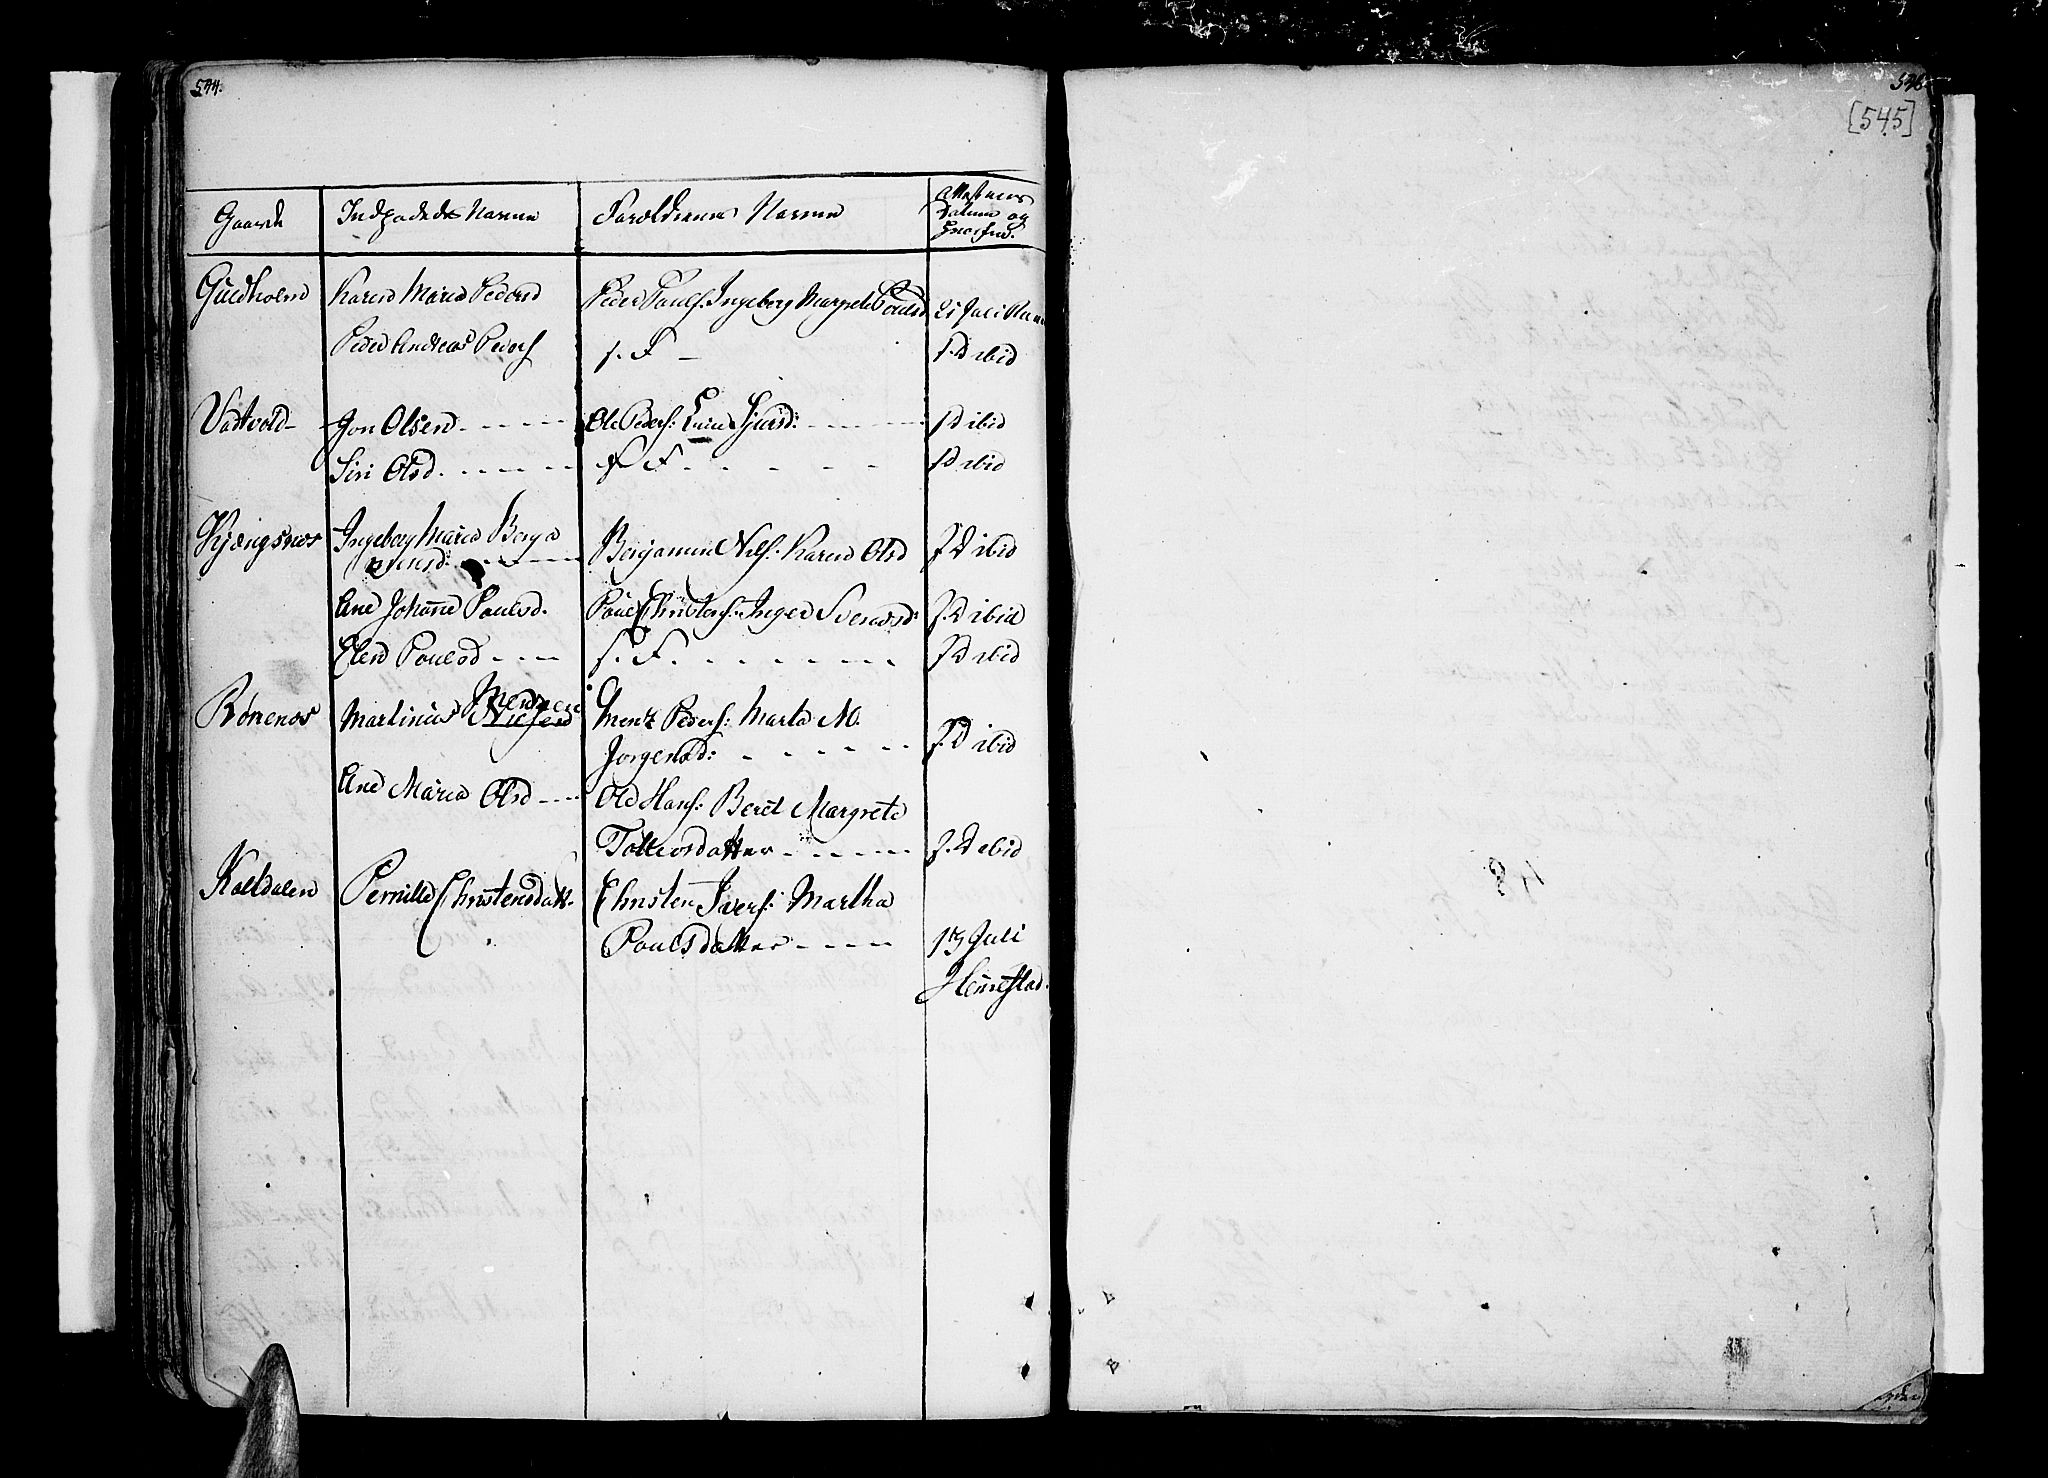 544.
Gaarde Indpodedes Navne Forældrenes Navne Attestens Datum og
Guldholm Karen Maria Pedersd Peder Pauls. Ingeborg Margrete Poulsd 21 Juli
Peder Andreas Peders s. F – s. D ibid
Vattvold – Jon Olsen Ole Peders: Sjursd: s D ibid
Siri Olsd. s F s D ibid
Kjængsnes Ingeborg Maria Benja
minsd: Benjamin Nils: Karen Olsd s D ibid
Ane Johanne Paulsd. Poul Christens: Inger Svendsd: s. D ibid
Elen Poulsd s. F. s D ibid
Rønenes Martinus Nielsen Mentz Peders: Marta M.
Jørgensd: s. D ibid
Ane Maria Olsd Ole Hans: Beret Margrete
Tollevsdatter s. D ibid
Kaldalen Pernille Christensdatt. Christen Ivers: Martha
Poulsdatter 13 Juli
Hennestad.
[545]